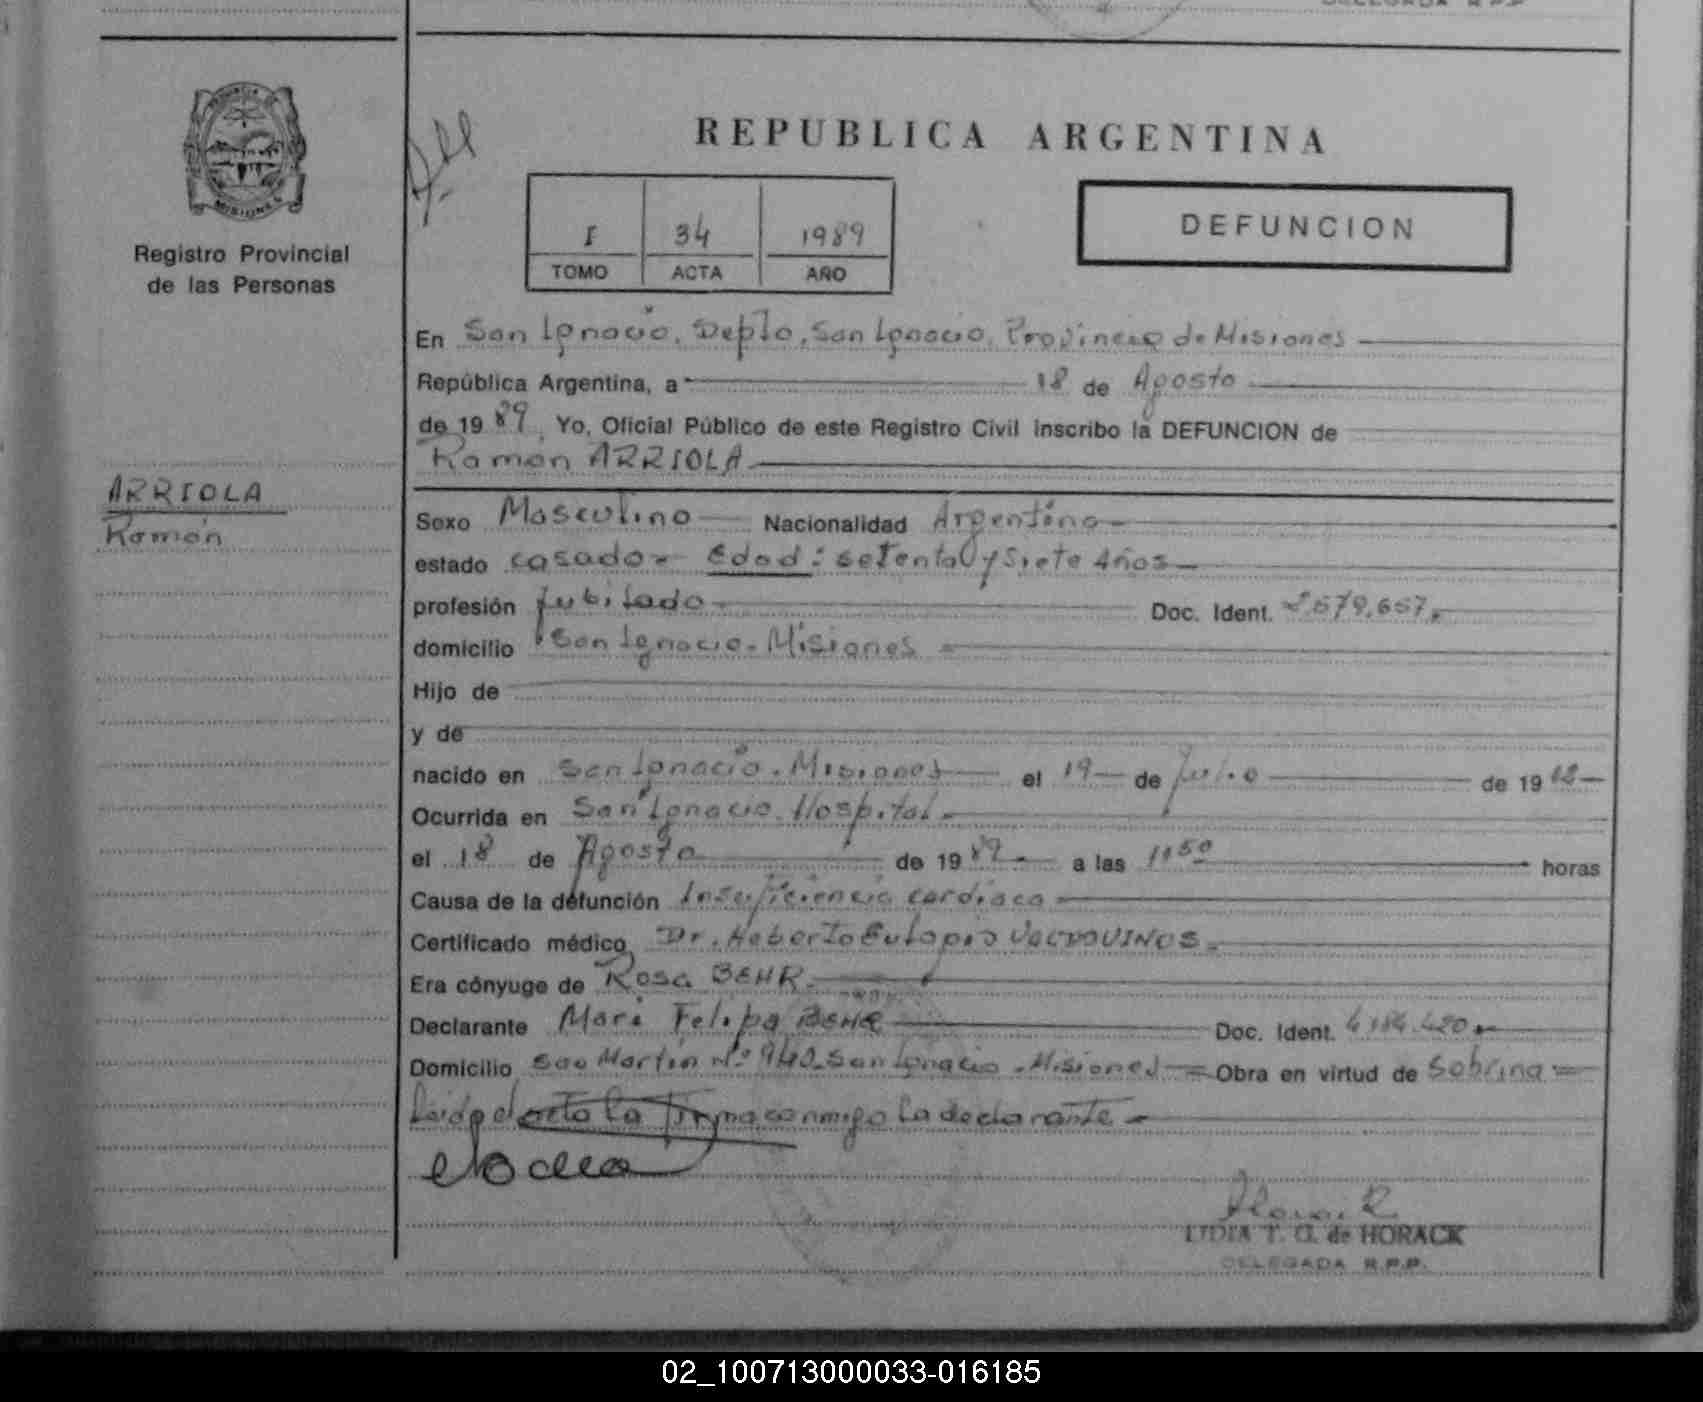 PROVINCIA DE
MISIONES
Registro Provincial
de las Personas
ARRIOLA
Ramón
REPUBLICA ARGENTINA
I 34 1989
TOMO ACTA AÑO
DEFUNCION
En San Ignacio, Depto, San Ignacio, Provincia de Misiones
República Argentina, a 18 de Agosto
de 1989, Yo, Oficial Público de este Registro Civil inscribo la DEFUNCION de
Ramon ARRIOLA
Sexo Masculino Nacionalidad Argentino
estado casado Edad: setenta y siete Años
profesión Jubilado Doc. Ident.
domicilio San Ignacio - Misiones
Hijo de
y de
nacido en San Ignacio - Misiones el 19 de Julio de 1912
Ocurrida en San Ignacio Hospital
el 18 de Agosto de 1989 a las 11,50 horas
Causa de la defunción Insuficiencia cardiaca
Certificado médico Dr. Heberto Eulogio VALDOVINOS
Era cónyuge de Rosa BEHR
Declarante Mari Felipa BEHR Doc. Ident.
Domicilio San Martín Nº 940 San Ignacio - Misiones Obra en virtud de Sobrina
Leida el acta la firma conmigo la declarante
LIDIA T. G. de HORACK
DELEGADA R.P.P.
02_100713000033-016185